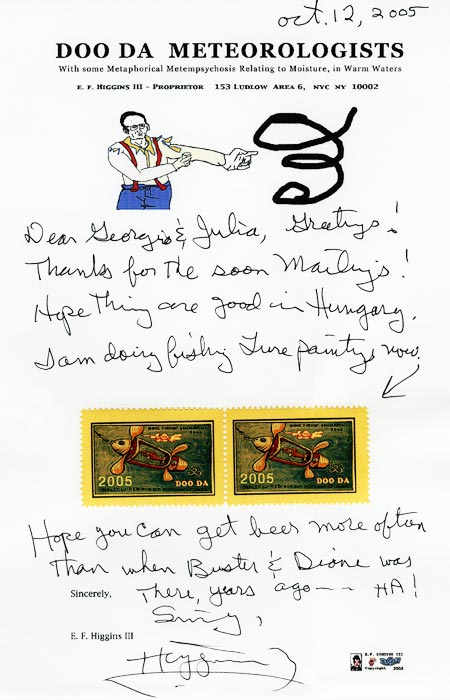 oct. 12, 2005
DOO DA METEOROLOGISTS
With some Metaphorical Metempsychosis Relating to Moisture, in Warm Waters
E. F. HIGGINS III - PROPRIETOR 153 LUDLOW AREA 6, NYC NY 10002
Dear Georgis & Julia, Greetings!
Thanks for the soon Mailings!
Hope Thing are good in Hungary.
I am doing fishing Lure paintings now.
2005 DOO DA 2005 DOO DA
Hope you can get beer more often
Than when Buster & Dione was
There, years ago -- HA!
Sincerely,
E. F. Higgins III
E.F. HIGGINS III
Copyright 2005